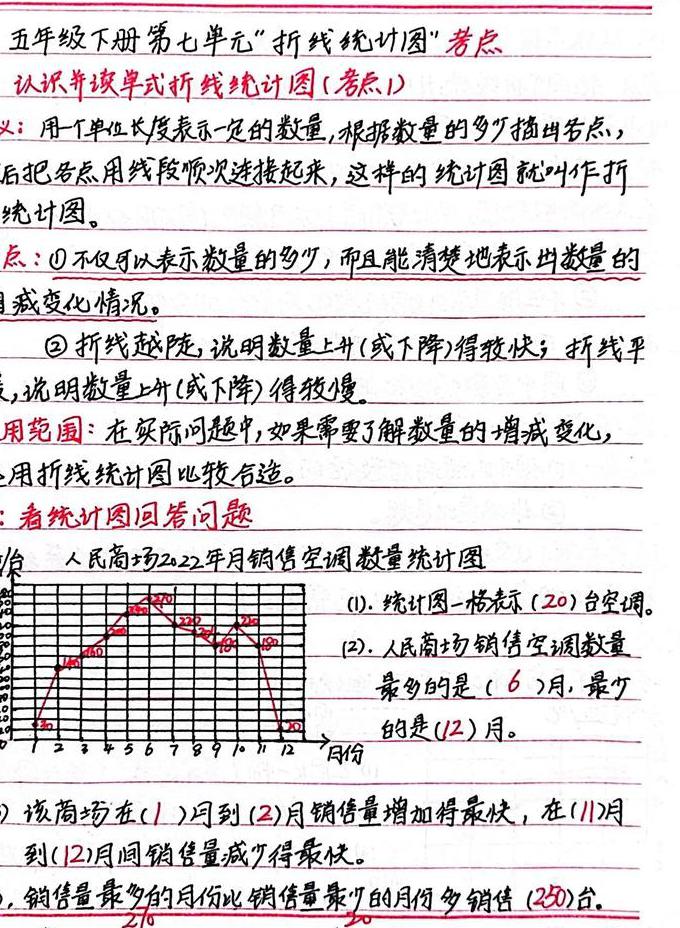 五年级下册第七单元"折线统计图"考点
认识并读单式折线统计图(考点1)
义：用一个单位长度表示一定的数量,根据数量的多少描出各点,
后把各点用线段顺次连接起来,这样的统计图就叫作折
统计图。
点：①不仅可以表示数量的多少,而且能清楚地表示出数量的
减变化情况。
②折线越陡,说明数量上升(或下降)得较快；折线平
,说明数量上升(或下降)得较慢。
用范围：在实际问题中,如果需要了解数量的增减变化,
用折线统计图比较合适。
：看统计图回答问题
/台 人民商场2022年月销售空调数量统计图
(1). 统计图一格表示(20)台空调。
(2). 人民商场销售空调数量
最多的是(6)月,最少
的是(12)月。
30 140 160 200 240 270 220 180 220 180 20
0 1 2 3 4 5 6 7 8 9 10 11 12 月份
) 该商场在(1)月到(2)月销售量增加得最快,在(11)月
到(12)月间销售量减少得最快。
), 销售量最多的月份比销售量最少的月份多销售(250)台。
270 20